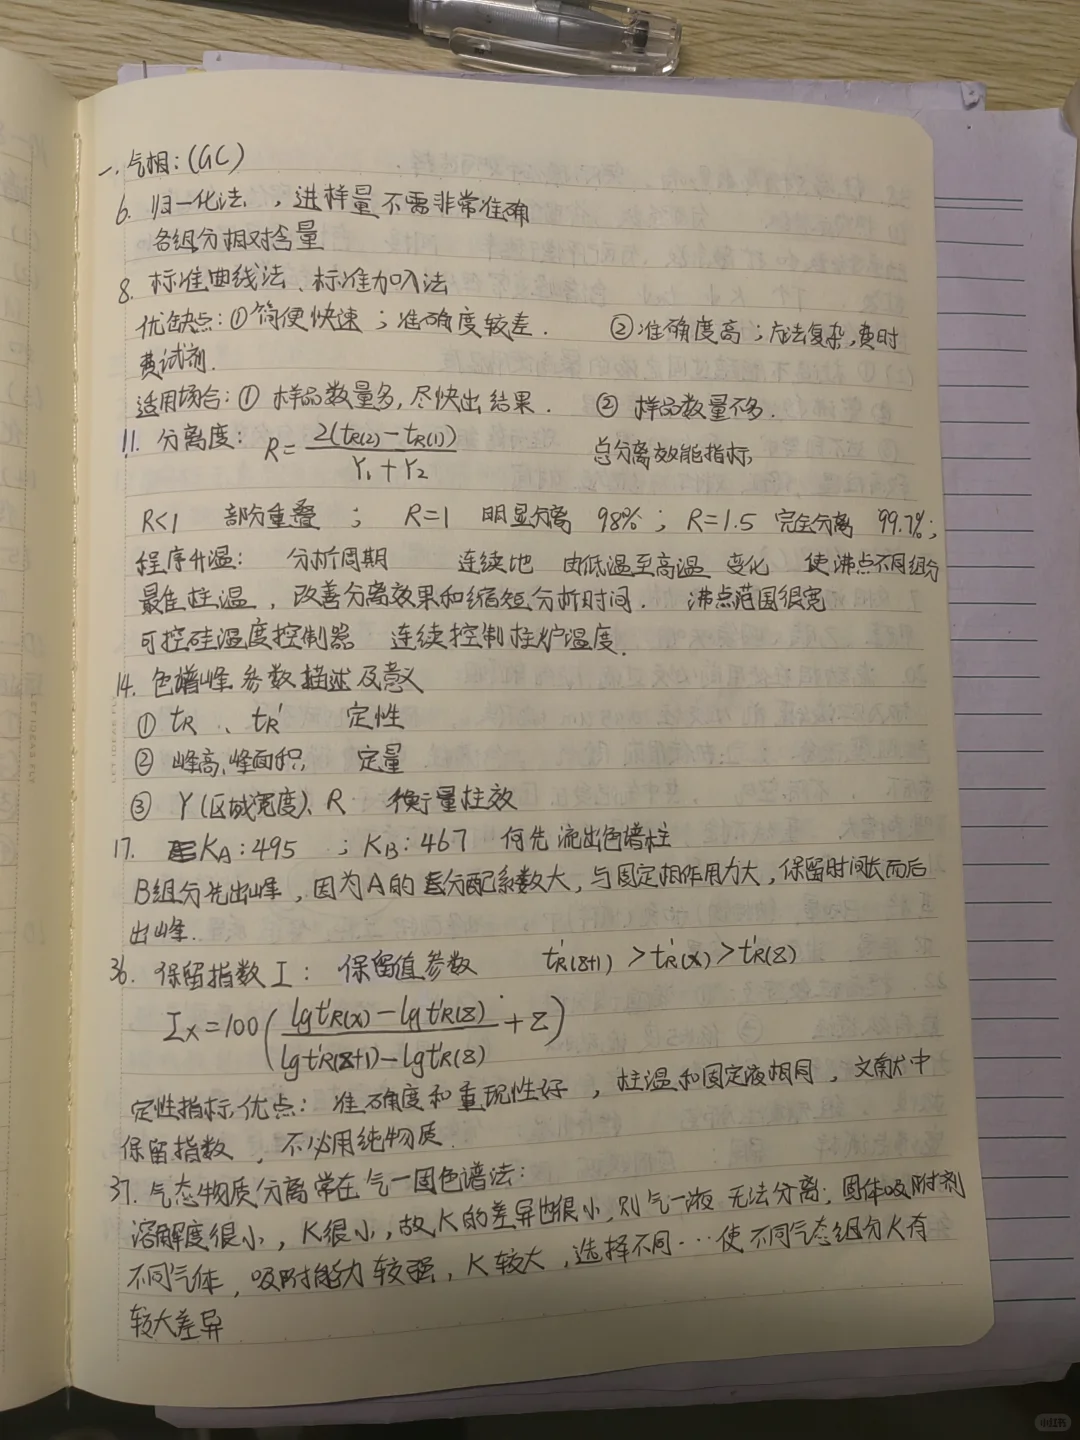 一.气相:(GC)
6. 归一化法 ,进样量不需非常准确
各组分相对含量
8. 标准曲线法、标准加入法
优缺点:①简便快速;准确度较差. ②准确度高;方法复杂,费时
费试剂.
适用场合:① 样品数量多,尽快出结果. ② 样品数量不多.
11. 分离度: R=2(tR(2)-tR(1))/(Y1+Y2) 总分离效能指标
R<1 部分重叠 ; R=1 明显分离 98%; R=1.5 完全分离 99.7%;
程序升温: 分析周期 连续地 由低温至高温 变化 使沸点不同组分
最佳柱温,改善分离效果和缩短分析时间. 沸点范围很宽
可控硅温度控制器 连续控制柱炉温度.
14. 色谱峰参数描述及意义
① tR 、tR' 定性
② 峰高、峰面积 定量
③ Y(区域宽度)、R 衡量柱效
17. KA:495 ;KB:467 何先流出色谱柱
B组分先出峰,因为A的分配系数大,与固定相作用力大,保留时间长而后
出峰.
36. 保留指数I: 保留值参数 t'R(z+1)>t'R(x)>t'R(z)
Ix=100((lgt'R(x)-lgt'R(z))/(lgt'R(z+1)-lgt'R(z))+z)
定性指标,优点: 准确度和重现性好 ,柱温和固定液相同,文献中
保留指数 ,不必用纯物质.
37. 气态物质分离常在气一固色谱法:
溶解度很小,K很小,故K的差异也很小,则气一液 无法分离;固体吸附剂
不同气体,吸附能力较强,K较大,选择不同…使不同气态组分K有
较大差异
小红书